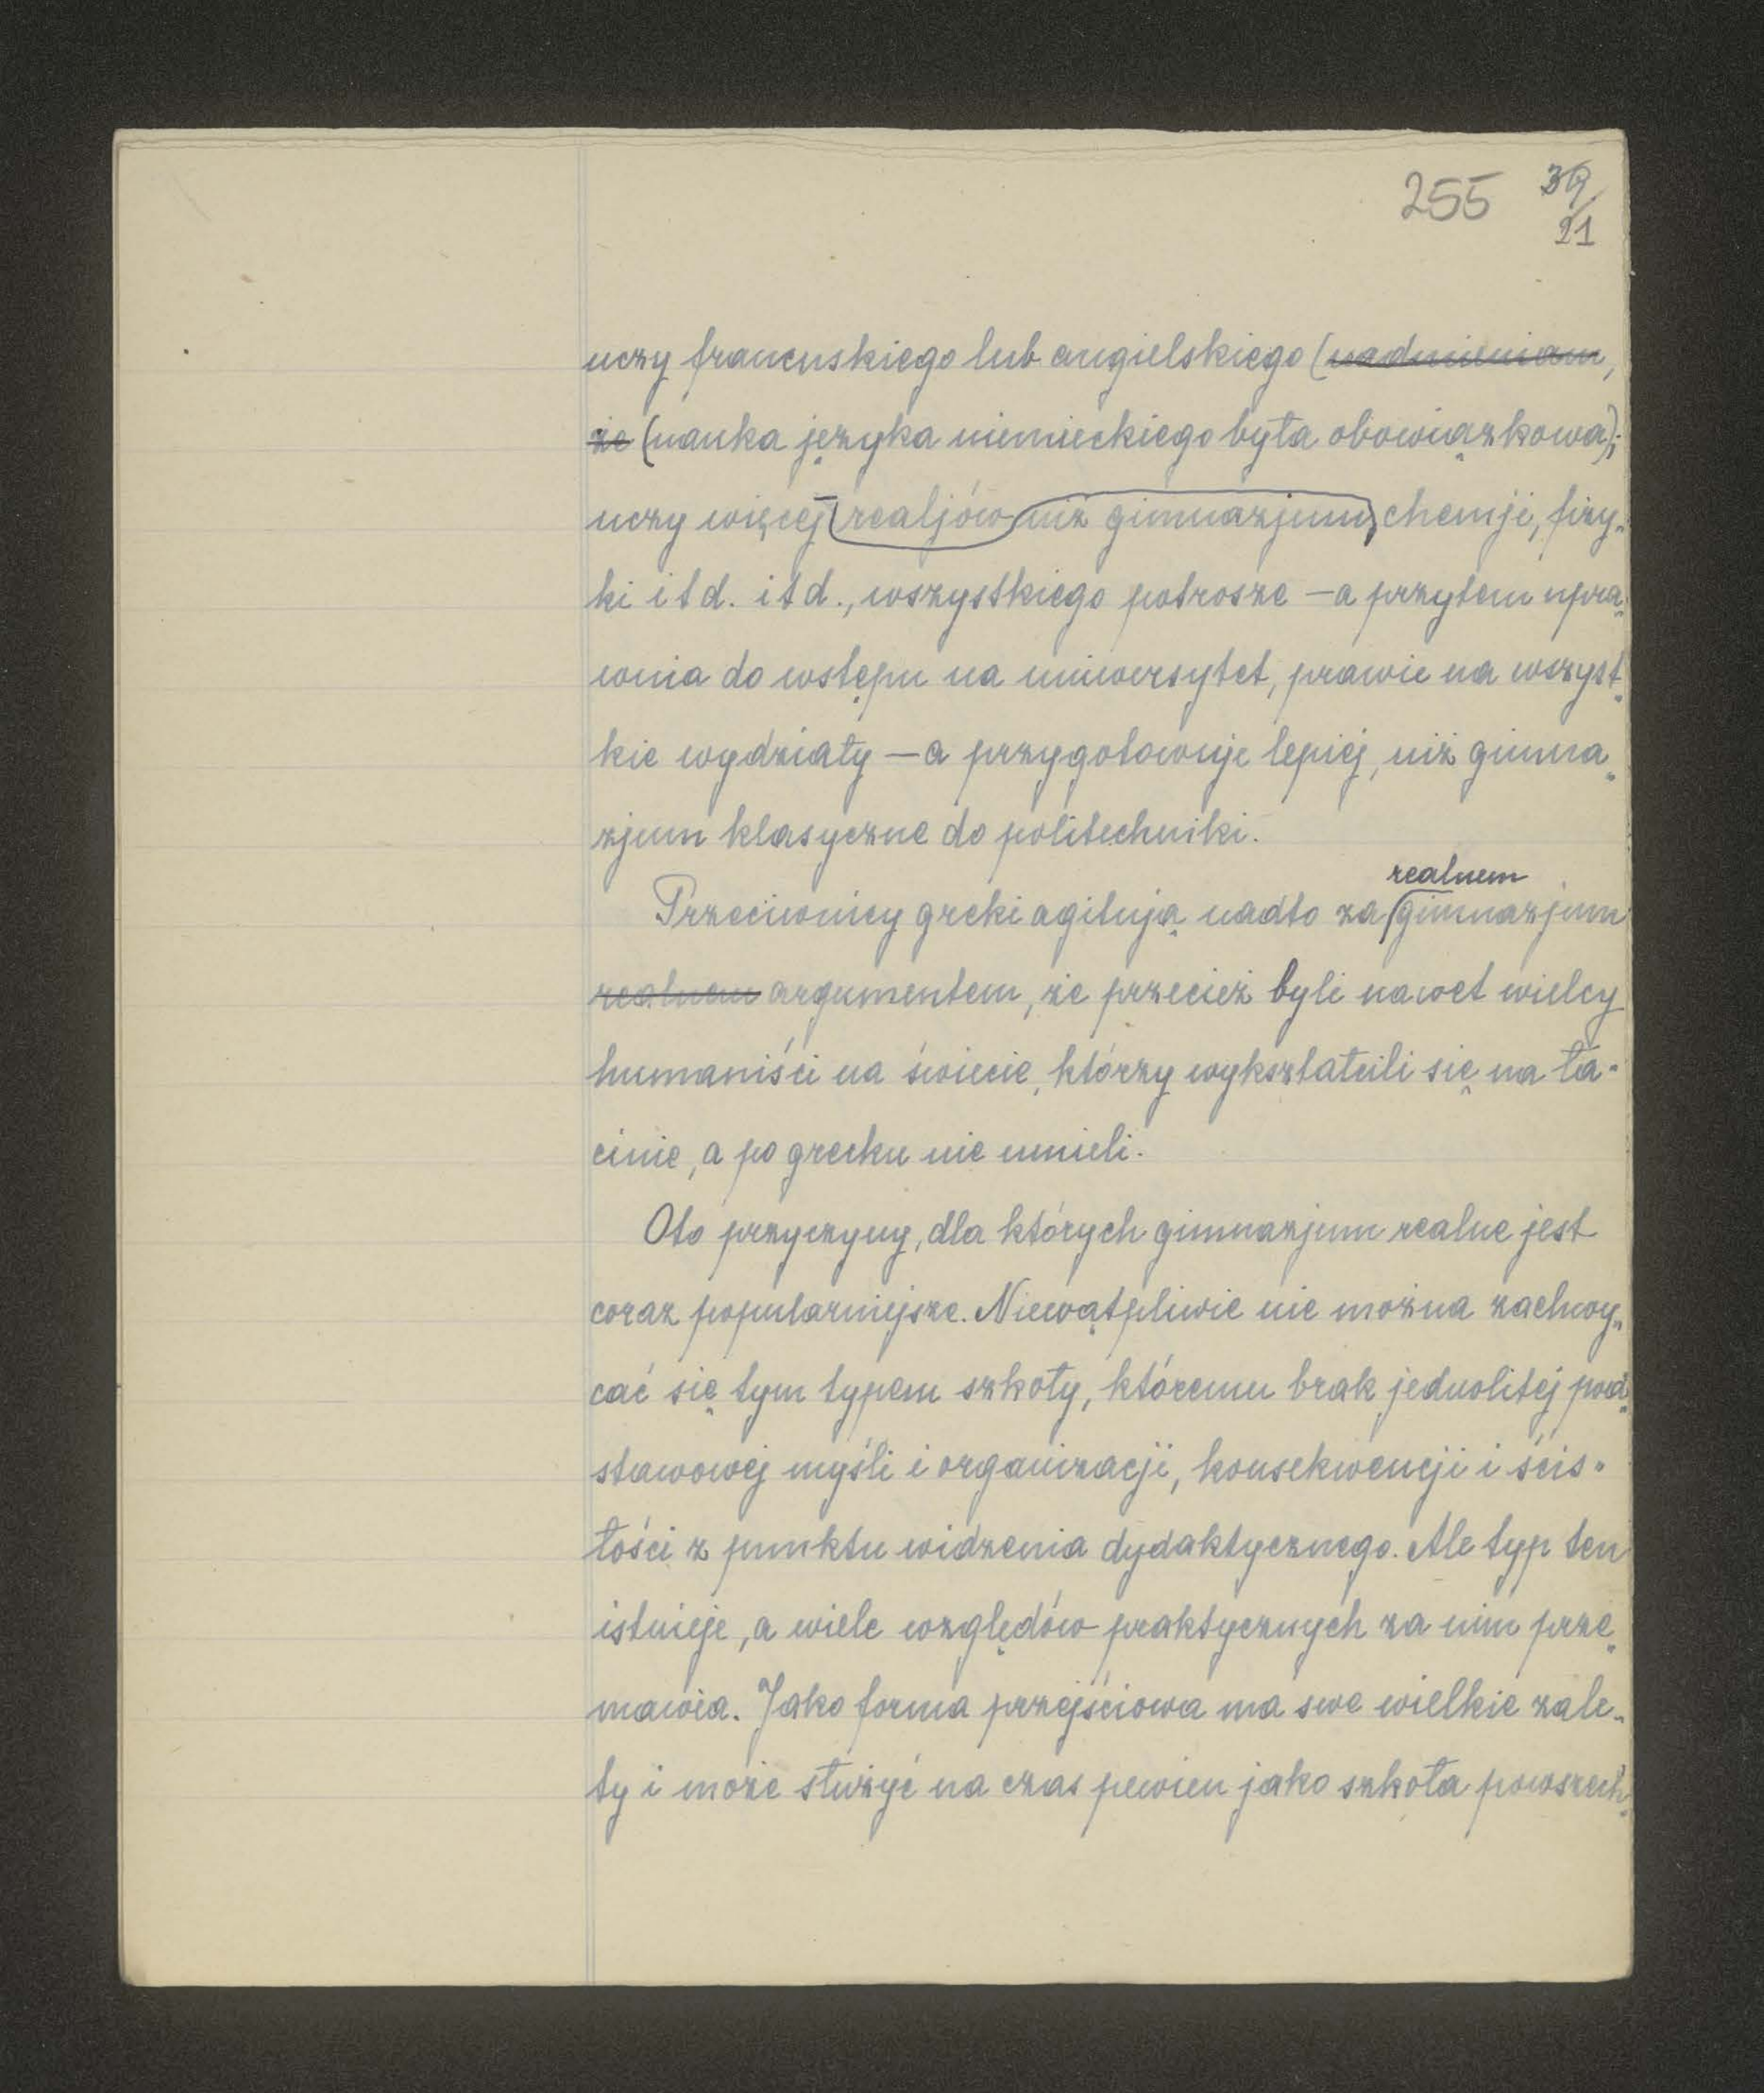 255 39/21
uczy francuskiego lub angielskiego (nadmieniam,
że (nauka języka niemieckiego była obowiązkowa);
uczy więcej realjów niż gimnazjum, chemji, fizy„
ki i t d. i t d., wszystkiego potrosze – a przytem upra„
wnia do wstępu na uniwersytet, prawie na wszyst„
kie wydziały – a przygotowuje lepiej, niż gimna„
zjum klasyczne do politechniki.
realnem
Przeciwnicy greki agitują nadto za gimnazjum
realnem argumentem, że przecież byli nawet wielcy
humaniści na świecie, którzy wykształcili się na ła-
cinie, a po grecku nie umieli.
Oto przyczyny, dla których gimnazjum realne jest
coraz popularniejsze. Niewątpliwie nie można zachwy„
cać się tym typem szkoły, któremu brak jednolitej pod„
stawowej myśli i organizacji, konsekwencji i ścis-
łości z punktu widzenia dydaktycznego. Ale typ ten
istnieje, a wiele względów praktycznych za nim prze„
mawia. Jako forma przejściowa ma swe wielkie zale„
ty i może służyć na czas pewien jako szkoła powszech„